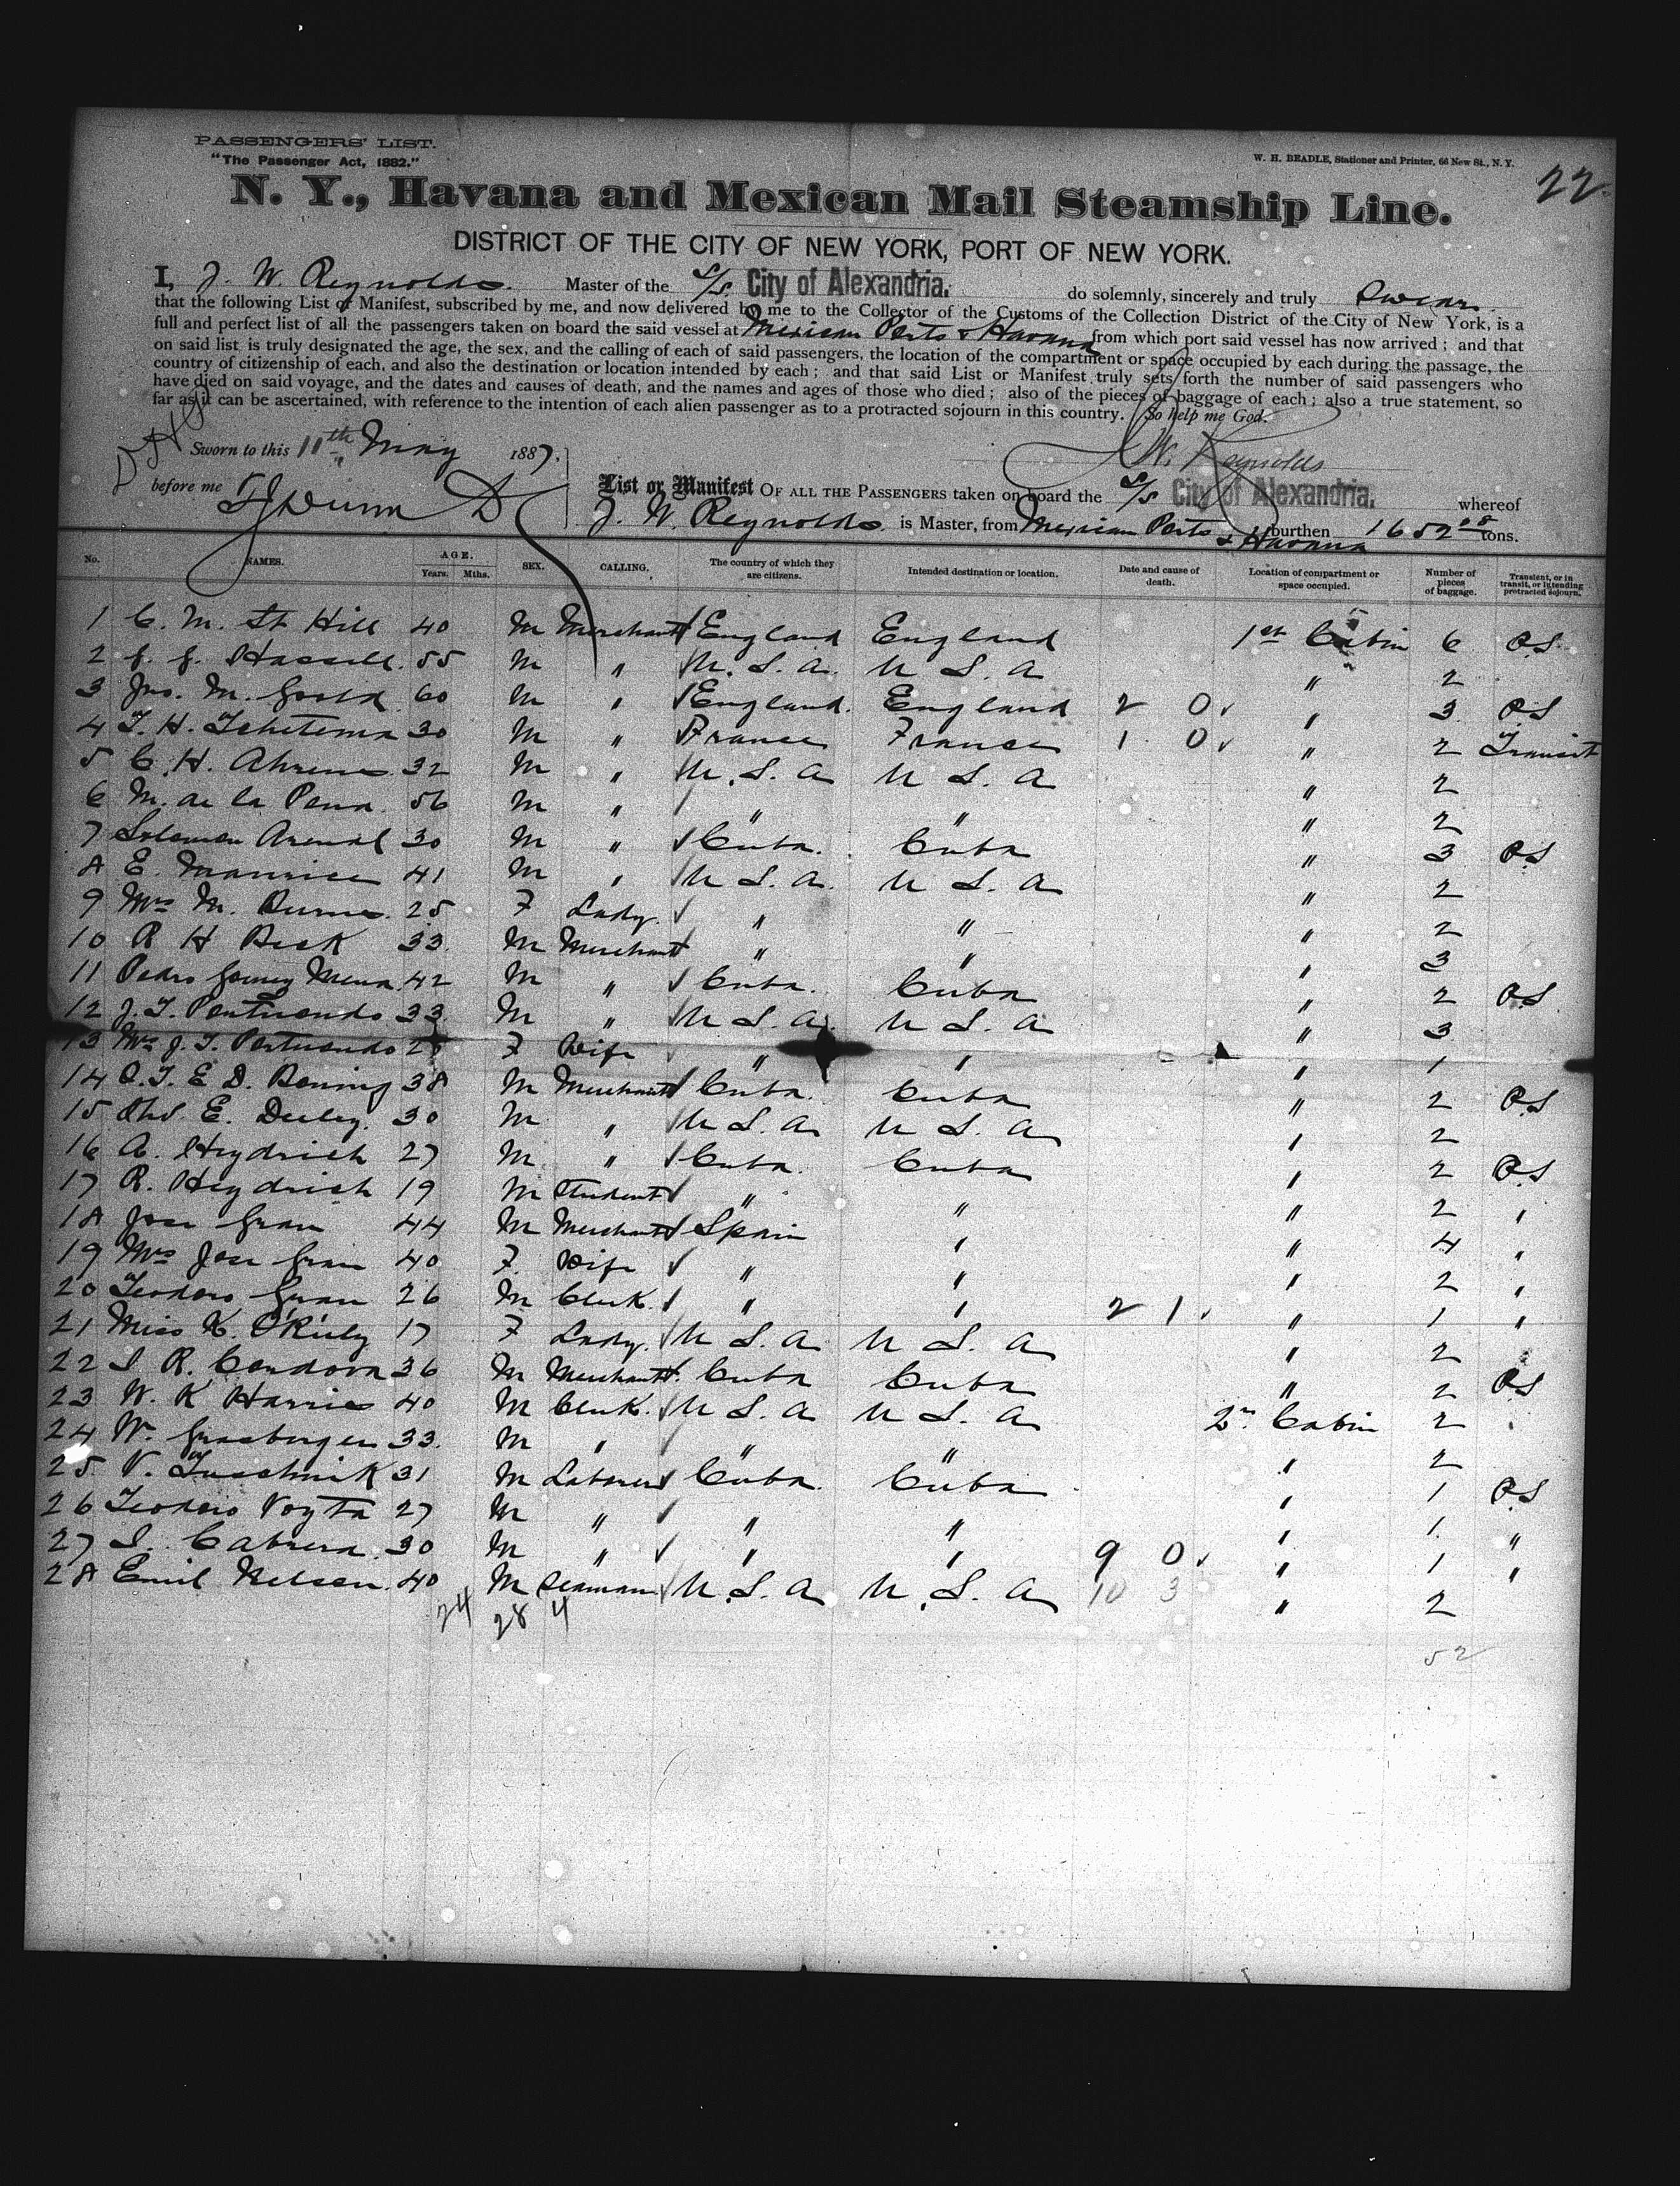 PASSENGERS' LIST.
"The Passenger Act, 1882."
W. H. BEADLE, Stationer and Printer, 66 New St., N. Y.
22
N. Y., Havana and Mexican Mail Steamship Line.
DISTRICT OF THE CITY OF NEW YORK, PORT OF NEW YORK.
I, J. W. Reynolds. Master of the S/S City of Alexandria. do solemnly, sincerely and truly Swear
that the following List of Manifest, subscribed by me, and now delivered by me to the Collector of the Customs of the Collection District of the City of New York, is a
full and perfect list of all the passengers taken on board the said vessel at Mexican Ports & Havana from which port said vessel has now arrived; and that
on said list is truly designated the age, the sex, and the calling of each of said passengers, the location of the compartment or space occupied by each during the passage, the
country of citizenship of each, and also the destination or location intended by each; and that said List or Manifest truly sets forth the number of said passengers who
have died on said voyage, and the dates and causes of death, and the names and ages of those who died; also of the pieces of baggage of each; also a true statement, so
far as it can be ascertained, with reference to the intention of each alien passenger as to a protracted sojourn in this country. So help me God.
Sworn to this 11th May 1887. J W. Reynolds
before me
List or Manifest OF ALL THE PASSENGERS taken on board the S/S City of Alexandria. whereof
J. W. Reynolds is Master, from Mexican Ports & Havana burthen 1652 08 tons.
No. NAMES. AGE. Years. Mths. SEX. CALLING. The country of which they are citizens. Intended destination or location. Date and cause of death. Location of compartment or space occupied. Number of pieces of baggage. Transient, or in transit, or intending protracted sojourn.
1 C. M. St Hill 40 M Merchant England England 1st Cabin 6 P.S
2 J. J. Hassell. 55 M " U. S. A. U S. A " 2
3 Jno. M. Goold 60 M " England. England 2 0 " 3 P.S
4 30 M " France France 1 0 " 2 Transit
5 C. H. Ahrens 32 M " U. S. A U S. A " 2
6 M. de la Pena. 56 M " " " " 2
7 Solomon 30 M " Cuba. Cuba " 3 P.S
8 E. Maurice 41 M " U S. A. U S. A " 2
9 Mrs M. Burns. 25 F Lady. " " " 2
10 R H Beck 33. M Merchant " " " 3
11 Pedro Gomez Mena. 42 M " Cuba. Cuba " 2 P.S
12 J. T. Portuondo 33. M " U S. A. U S. A " 3
13 Mrs J. T. Portuondo F Wife " " " 1
14 38 M Merchant Cuba. Cuba " 2 P.S
15 Chs. E. 30 M " U S. A U S. A " 2
16 A. Heydrich 27 M " Cuba. Cuba " 2 P.S
17 R. Heydrich 19 M Student " " " 2 "
18 Jose Grau 44 M Merchant Spain " " 4 "
19 Mrs Jose Grau 40 F. Wife " " " 2 "
20 Teodoro Grau 26 M Clerk. " " 2 1 " 1 "
21 Miss K. O'Riely 17 F Lady. U S. A. U S. A " 2
22 S R. Cordova 36 M Merchant. Cuba Cuba " 2 P.S
23 W. K Harris 40 M Clerk. U S. A U S. A 2n Cabin 2
24 W. 33. M " " " " 2
25. V. 31 M Laborer Cuba. Cuba " 1 P.S
26 Teodoro Voyta 27 M " " " " 1. "
27 S. Cabrera. 30 M " " " 9 0 " 1 "
28 Emil Nelson. 40 M Seaman U. S. A U. S. A 10 3 " 2
24 28 4
52